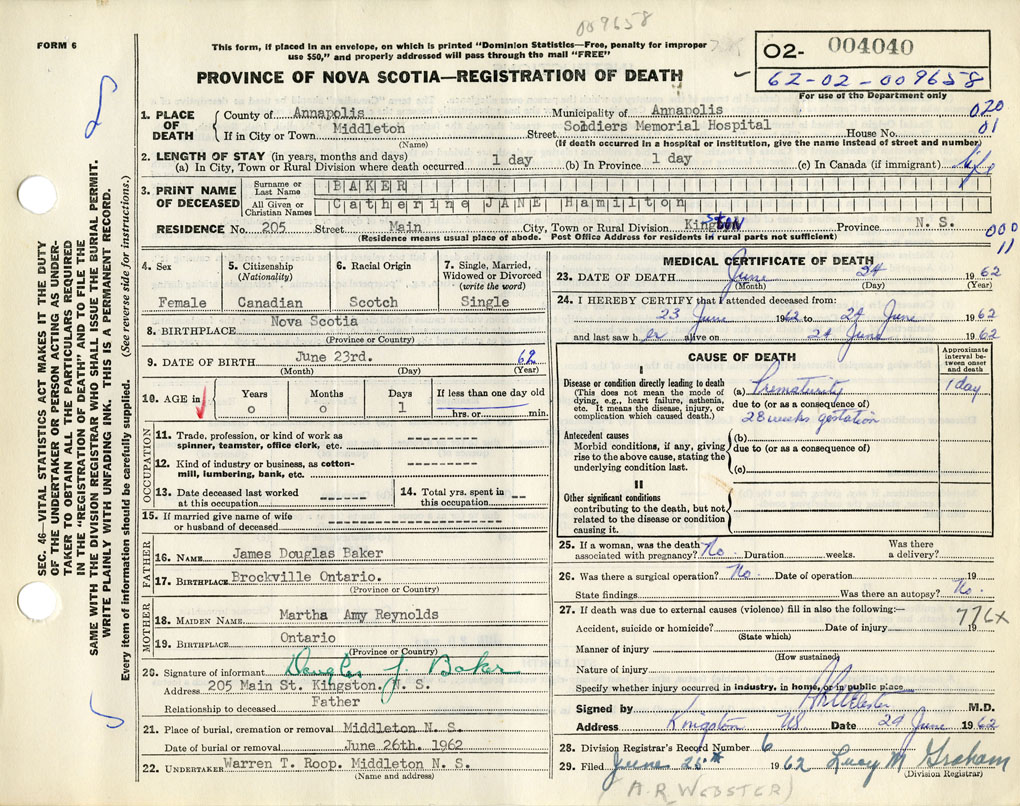 009658
FORM 6
This form, if placed in an envelope, on which is printed "Dominion Statistics—Free, penalty for improper
use $50," and properly addressed will pass through the mail "FREE"
O2- 004040
62-02-009658
For use of the Department only
PROVINCE OF NOVA SCOTIA—REGISTRATION OF DEATH
SEC. 46—VITAL STATISTICS ACT MAKES IT THE DUTY
OF THE UNDERTAKER OR PERSON ACTING AS UNDER-
TAKER TO OBTAIN ALL THE PARTICULARS REQUIRED
IN THE "REGISTRATION OF DEATH" AND TO FILE THE
SAME WITH THE DIVISION REGISTRAR WHO SHALL ISSUE THE BURIAL PERMIT.
WRITE PLAINLY WITH UNFADING INK. THIS IS A PERMANENT RECORD.
Every item of information should be carefully supplied. (See reverse side for instructions.)
1. PLACE OF DEATH
County of Annapolis Municipality of Annapolis 020
If in City or Town Middleton Street Soldiers Memorial Hospital House No. 01
(Name) (If death occurred in a hospital or institution, give the name instead of street and number)
2. LENGTH OF STAY (in years, months and days)
(a) In City, Town or Rural Division where death occurred 1 day (b) In Province 1 day (c) In Canada (if immigrant)
3. PRINT NAME OF DECEASED
Surname or Last Name BAKER
All Given or Christian Names Catherine JANE Hamilton
RESIDENCE No. 205 Street Main City, Town or Rural Division Kingston Province N. S. 000
(Residence means usual place of abode. Post Office Address for residents in rural parts not sufficient) 11
4. Sex Female
5. Citizenship (Nationality) Canadian
6. Racial Origin Scotch
7. Single, Married, Widowed or Divorced (write the word) Single
8. BIRTHPLACE Nova Scotia
(Province or Country)
9. DATE OF BIRTH June 23rd. 62
(Month) (Day) (Year)
10. AGE in Years 0 Months 0 Days 1 If less than one day old hrs. or min.
OCCUPATION
11. Trade, profession, or kind of work as
spinner, teamster, office clerk, etc. ----------
12. Kind of industry or business, as cotton-
mill, lumbering, bank, etc. ----------
13. Date deceased last worked
at this occupation ------
14. Total yrs. spent in
this occupation --
15. If married give name of wife
or husband of deceased -------------
FATHER
16. NAME James Douglas Baker
17. BIRTHPLACE Brockville Ontario.
(Province or Country)
MOTHER
18. MAIDEN NAME Martha Amy Reynolds
19. BIRTHPLACE Ontario
(Province or Country)
20. Signature of informant Douglas J. Baker
Address 205 Main St. Kingston, N. S.
Relationship to deceased Father
21. Place of burial, cremation or removal Middleton N. S.
Date of burial or removal June 26th. 1962
22. UNDERTAKER Warren T. Roop. Middleton N. S.
(Name and address)
MEDICAL CERTIFICATE OF DEATH
23. DATE OF DEATH June 24 1962
(Month) (Day) (Year)
24. I HEREBY CERTIFY that I attended deceased from:
23 June 1962 to 24 June 1962
and last saw her alive on 24 June 1962
CAUSE OF DEATH
Approximate interval between onset and death
I
Disease or condition directly leading to death
(This does not mean the mode of
dying, e.g., heart failure, asthenia,
etc. It means the disease, injury, or
complication which caused death.)
(a) Prematurity 1 day
due to (or as a consequence of)
28 weeks gestation
Antecedent causes
Morbid conditions, if any, giving
rise to the above cause, stating the
underlying condition last.
(b)
due to (or as a consequence of)
(c)
II
Other significant conditions
contributing to the death, but not
related to the disease or condition
causing it.
25. If a woman, was the death
associated with pregnancy? No. Duration weeks. Was there a delivery?
26. Was there a surgical operation? No. Date of operation 19
State findings Was there an autopsy? No.
27. If death was due to external causes (violence) fill in also the following:— 776X
Accident, suicide or homicide? Date of injury 19
(State which)
Manner of injury
(How sustained)
Nature of injury
Specify whether injury occurred in industry, in home, or in public place
Signed by A R Webster M.D.
Address Kingston NS Date 24 June 1962
28. Division Registrar's Record Number 6
29. Filed June 25th 1962 Lucy M Graham
(Division Registrar)
(A.R. WEBSTER)